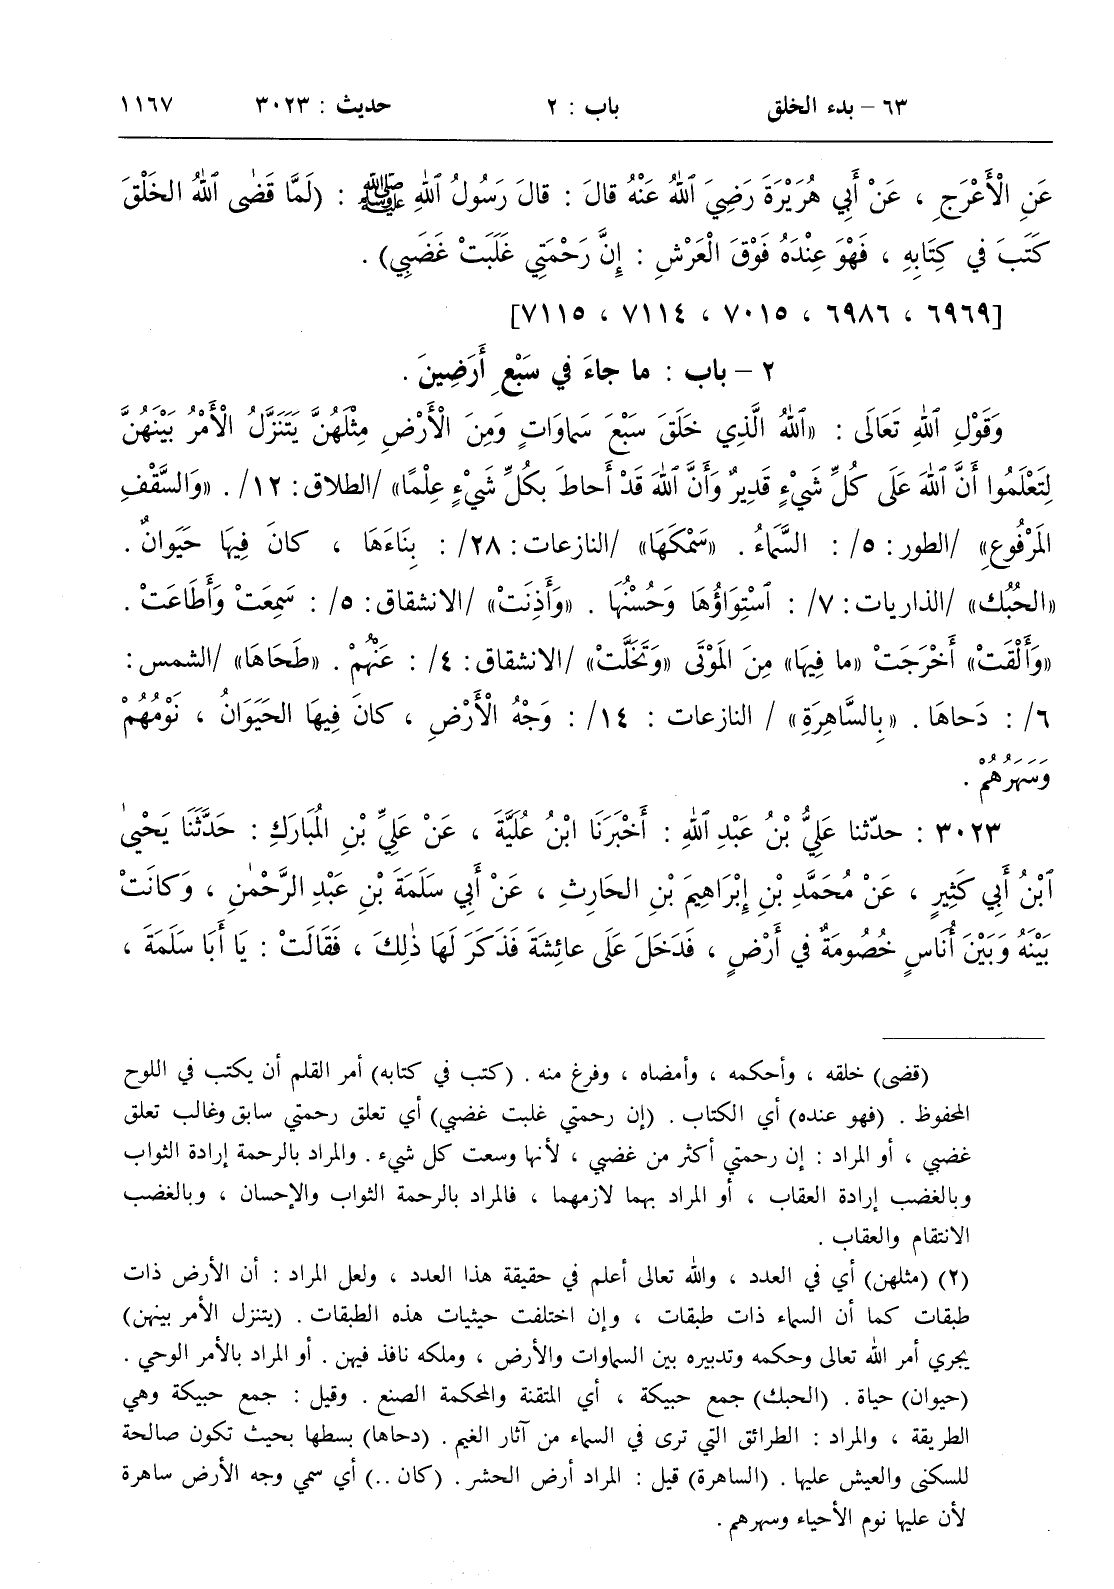 ٦٣ – بدء الخلق باب : ٢ حديث : ٣٠٢٣ ١١٦٧
عَنِ الْأَعْرَجِ ، عَنْ أَبِي هُرَيْرَةَ رَضِيَ ٱللهُ عَنْهُ قالَ : قالَ رَسُولُ ٱللهِ ﷺ : (لَمَّا قَضٰى ٱللهُ الخَلْقَ
كَتَبَ في كِتَابِهِ ، فَهْوَ عِنْدَهُ فَوْقَ الْعَرْشِ : إِنَّ رَحْمَتِي غَلَبَتْ غَضَبِي) .
[٦٩٦٩ ، ٦٩٨٦ ، ٧٠١٥ ، ٧١١٤ ، ٧١١٥]
٢ – باب : ما جاءَ في سَبْعِ أَرَضِينَ .
وَقَوْلِ ٱللهِ تَعَالَى : «ٱللهُ الَّذِي خَلَقَ سَبْعَ سَماوَاتٍ وَمِنَ الْأَرْضِ مِثْلَهُنَّ يَتَنَزَّلُ الْأَمْرُ بَيْنَهُنَّ
لِتَعْلَمُوا أَنَّ ٱللهَ عَلَى كُلِّ شَيْءٍ قَدِيرٌ وَأَنَّ ٱللهَ قَدْ أَحاطَ بِكُلِّ شَيْءٍ عِلْمًا» /الطلاق: ١٢/ . «وَالسَّقْفِ
المَرْفُوعِ» /الطور: ٥/ : السَّمَاءُ . «سَمْكَهَا» /النازعات: ٢٨/ : بِنَاءَهَا ، كانَ فِيهَا حَيَوانٌ .
«الحُبُك» /الذاريات: ٧/ : ٱسْتِوَاؤُهَا وَحُسْنُهَا . «وَأَذِنَتْ» /الانشقاق: ٥/ : سَمِعَتْ وَأَطَاعَتْ .
«وَأَلْقَتْ» أَخْرَجَتْ «ما فِيهَا» مِنَ المَوْتَى «وَتَخَلَّتْ» /الانشقاق: ٤/ : عَنْهُمْ . «طَحَاهَا» /الشمس:
٦/ : دَحاهَا . «بِالسَّاهِرَةِ» / النازعات : ١٤/ : وَجْهُ الْأَرْضِ ، كانَ فِيهَا الحَيَوَانُ ، نَوْمُهُمْ
وَسَهَرُهُمْ .
٣٠٢٣ : حدّثنا عَلِيُّ بْنُ عَبْدِ ٱللهِ : أَخْبَرَنَا ابْنُ عُلَيَّةَ ، عَنْ عَلِيِّ بْنِ المُبَارَكِ : حَدَّثَنَا يَحْيىٰ
ٱبْنُ أَبِي كَثِيرٍ ، عَنْ مُحَمَّدِ بْنِ إِبْرَاهِيمَ بْنِ الحَارِثِ ، عَنْ أَبِي سَلَمَةَ بْنِ عَبْدِ الرَّحْمٰنِ ، وَكانَتْ
بَيْنَهُ وَبَيْنَ أُنَاسٍ خُصُومَةٌ في أَرْضٍ ، فَدَخَلَ عَلَى عائِشَةَ فَذَكَرَ لَهَا ذٰلِكَ ، فَقَالَتْ : يَا أَبَا سَلَمَةَ ،
(قضى) خلقه ، وأحكمه ، وأمضاه ، وفرغ منه . (كتب في كتابه) أمر القلم أن يكتب في اللوح
المحفوظ . (فهو عنده) أي الكتاب . (إن رحمتي غلبت غضبي) أي تعلق رحمتي سابق وغالب تعلق
غضبي ، أو المراد : إن رحمتي أكثر من غضبي ، لأنها وسعت كل شيء . والمراد بالرحمة إرادة الثواب
وبالغضب إرادة العقاب ، أو المراد بهما لازمهما ، فالمراد بالرحمة الثواب والإحسان ، وبالغضب
الانتقام والعقاب .
(٢) (مثلهن) أي في العدد ، والله تعالى أعلم في حقيقة هذا العدد ، ولعل المراد : أن الأرض ذات
طبقات كما أن السماء ذات طبقات ، وإن اختلفت حيثيات هذه الطبقات . (يتنزل الأمر بينهن)
يجري أمر الله تعالى وحكمه وتدبيره بين السماوات والأرض ، وملكه نافذ فيهن . أو المراد بالأمر الوحي .
(حيوان) حياة . (الحبك) جمع حبيكة ، أي المتقنة والمحكمة الصنع . وقيل : جمع حبيكة وهي
الطريقة ، والمراد : الطرائق التي ترى في السماء من آثار الغيم . (دحاها) بسطها بحيث تكون صالحة
للسكنى والعيش عليها . (الساهرة) قيل : المراد أرض الحشر . (كان ..) أي سمي وجه الأرض ساهرة
لأن عليها نوم الأحياء وسهرهم .